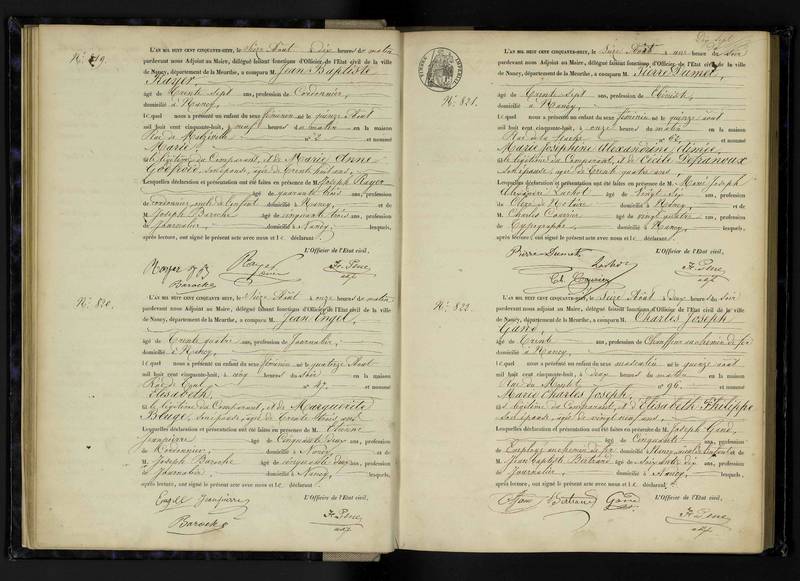 N.° 819.
L'AN MIL HUIT CENT CINQUANTE-HUIT, le Seize Août à Dix heures du matin
pardevant nous Adjoint au Maire, délégué faisant fonctions d'Officier de l'Etat civil de la ville
de Nancy, département de la Meurthe, a comparu M. Jean Baptiste
Royer
âgé de Trente Sept ans, profession de Cordonnier,
domicilié à Nancy,
lequel nous a présenté un enfant du sexe féminin né le quinze Août
mil huit cent cinquante-huit, à neuf heures du matin en la maison
Rue de n.° 2 et nommé
Marie,
légitime du Comparant, et de Marie Anne
son épouse, âgée de Trente huit ans,
Lesquelles déclaration et présentation ont été faites en présence de M. Joseph Royer
âgé de quarante trois ans, profession
de cordonnier, oncle de l'enfant domicilié à Nancy, et de
M. Joseph Baroche âgé de cinquante trois ans, profession
de Journalier, domicilié à Nancy, lesquels,
après lecture, ont signé le présent acte avec nous et le déclarant
L'Officier de l'Etat civil,
Royer
Baroche
N.° 820.
L'AN MIL HUIT CENT CINQUANTE-HUIT, le Seize Août à onze heures du matin
pardevant nous Adjoint au Maire, délégué faisant fonctions d'Officier de l'Etat civil de la ville
de Nancy, département de la Meurthe, a comparu M. Jean Engel,
âgé de Trente quatre ans, profession de Journalier,
domicilié à Nancy,
lequel nous a présenté un enfant du sexe féminin né le quatorze Août
mil huit cent cinquante-huit, à cinq heures du soir en la maison
n.° 47. et nommé
Elisabeth,
légitime du Comparant, et de Marguerite
son épouse, âgée de Trente trois ans
Lesquelles déclaration et présentation ont été faites en présence de M. Etienne
Jeanpierre âgé de Cinquante deux ans, profession
de Cordonnier, domicilié à Nancy, et de
M. Joseph Baroche âgé de cinquante ans, profession
de Journalier, domicilié à Nancy, lesquels,
après lecture, ont signé le présent acte avec nous et le déclarant
L'Officier de l'Etat civil,
Engel Jeanpierre
Baroche
Dix sept
N.° 821.
L'AN MIL HUIT CENT CINQUANTE-HUIT, le Seize Août à une heure du soir
pardevant nous Adjoint au Maire, délégué faisant fonctions d'Officier de l'Etat civil de la ville
de Nancy, département de la Meurthe, a comparu M. Pierre Dumet,
âgé de Trente sept ans, profession de
domicilié à Nancy,
lequel nous a présenté un enfant du sexe féminin né le quinze août
mil huit cent cinquante-huit, à onze heures du matin en la maison
n.° 62, et nommé
Marie Joséphine Alexandrine Aimée,
légitime du Comparant, et de Cécile Defranoux
son épouse, âgée de Trente quatre ans,
Lesquelles déclaration et présentation ont été faites en présence de M. Joseph
Alexandre âgé de Vingt six ans, profession
de Clerc de Notaire domicilié à Nancy, et de
M. Charles Courrier âgé de vingt quatre ans, profession
de Typographe, domicilié à Nancy, lesquels,
après lecture, ont signé le présent acte avec nous et le déclarant
L'Officier de l'Etat civil,
Pierre Dumet
Ch. Courrier
N.° 822.
L'AN MIL HUIT CENT CINQUANTE-HUIT, le Seize Août à Deux heures du soir
pardevant nous Adjoint au Maire, délégué faisant fonctions d'Officier de l'Etat civil de la ville
de Nancy, département de la Meurthe, a comparu M. Charles Joseph
âgé de Trente ans, profession de Chauffeur au chemin de fer
domicilié à Nancy,
lequel nous a présenté un enfant du sexe masculin né le quinze août
mil huit cent cinquante-huit, à deux heures du matin en la maison
n.° 96. et nommé
Marie Charles Joseph,
légitime du Comparant, et d'Elisabeth Philippe
son épouse, âgée de vingt neuf ans,
Lesquelles déclaration et présentation ont été faites en présence de M. Joseph
âgé de Cinquante ans, profession
d'Employé au chemin de fer domicilié à Nancy, et de
M. Jean Baptiste Bertrand âgé de Soixante dix ans, profession
de Journalier, domicilié à Nancy, lesquels,
après lecture, ont signé le présent acte avec nous et le déclarant
L'Officier de l'Etat civil,
Bertrand